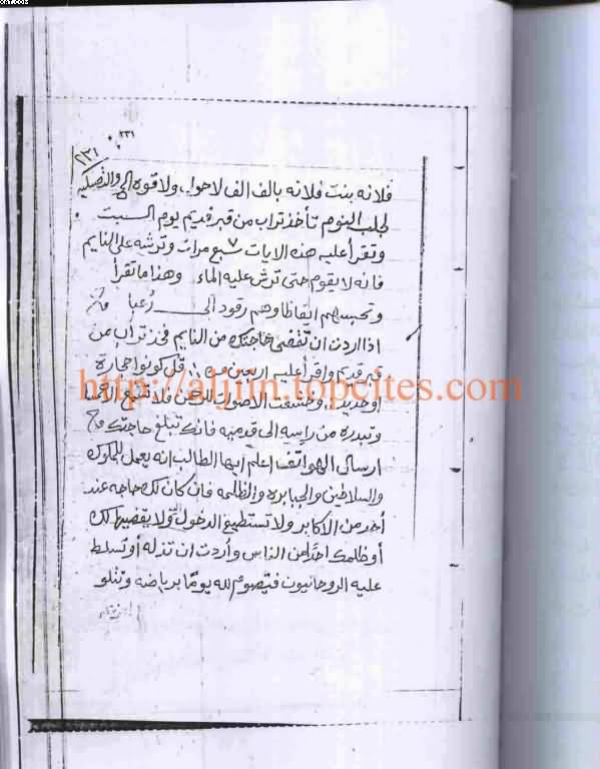 ٢٣١
٢٣١
فلانه بنت فلانه بالف الف لاحول ولا قوه
لجلب النوم تأخذ تراب من قبر قديم يوم السبت
وتقرأ عليه هذه الايات سبع مرات وترشه على النايم
فانه لا يقوم حتى ترش عليه الماء وهذا ما تقرأ
وتحسبهم ايقاظا وهم رقود الى رعبا
اذا اردت ان تقضى حاجتك من النايم فخذ تراب من
قبر قديم واقرأ عليه اربعين مره قل كونوا حجارة
او حديدا وخشعت الاصوات للرحمن فلا تسمع الا همسا
وتبدره من راسه الى قدميه فانك تبلغ حاجتك
ارسال الهواتف اعلم ايها الطالب انه يعمل للملوك
والسلاطين والجبابره والظلمه فان كان لك حاجه عند
احد من الاكابر ولا تستطيع الدخول ولا يقضيها لك
أو ظلمك احد من الناس وأردت ان تذله أو تسلط
عليه الروحانيون فتصوم لله يوما برياضه وتتلو
http://aljiin.topcites.com